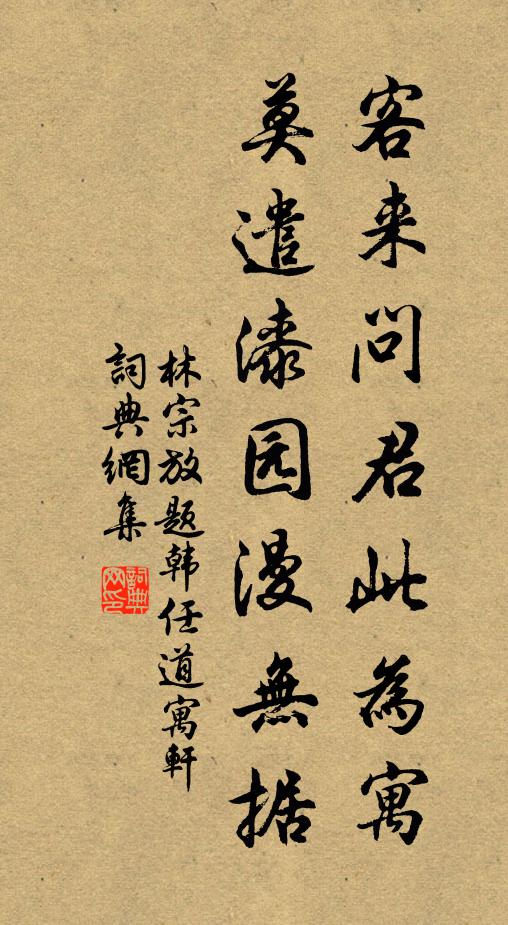 客来问君此為寓
莫遣漆园漫無据
林宗放题韩任道寓軒
詞典網集
詞典网印